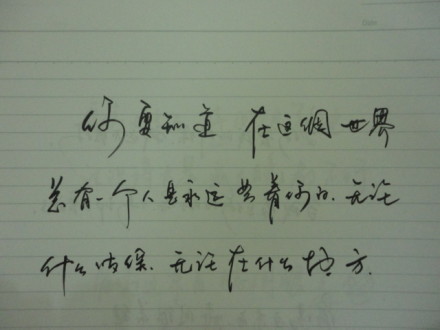 你要知道 在这個世界
总有一个人是永远等着你的.无论
什么时候.无论在什么地方.